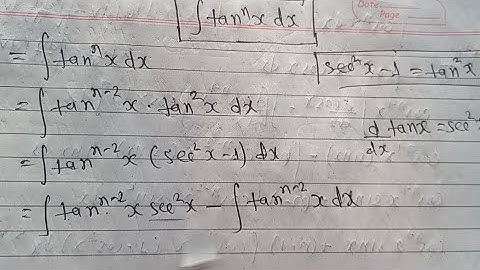 Date
Page
∫tanⁿx dx
= ∫tanⁿx dx
sec²x - 1 = tan²x
= ∫tanⁿ⁻²x · tan²x dx
d/dx tanx = sec²
= ∫tanⁿ⁻²x (sec²x-1) dx
= ∫tanⁿ⁻²x sec²x - ∫tanⁿ⁻²x dx